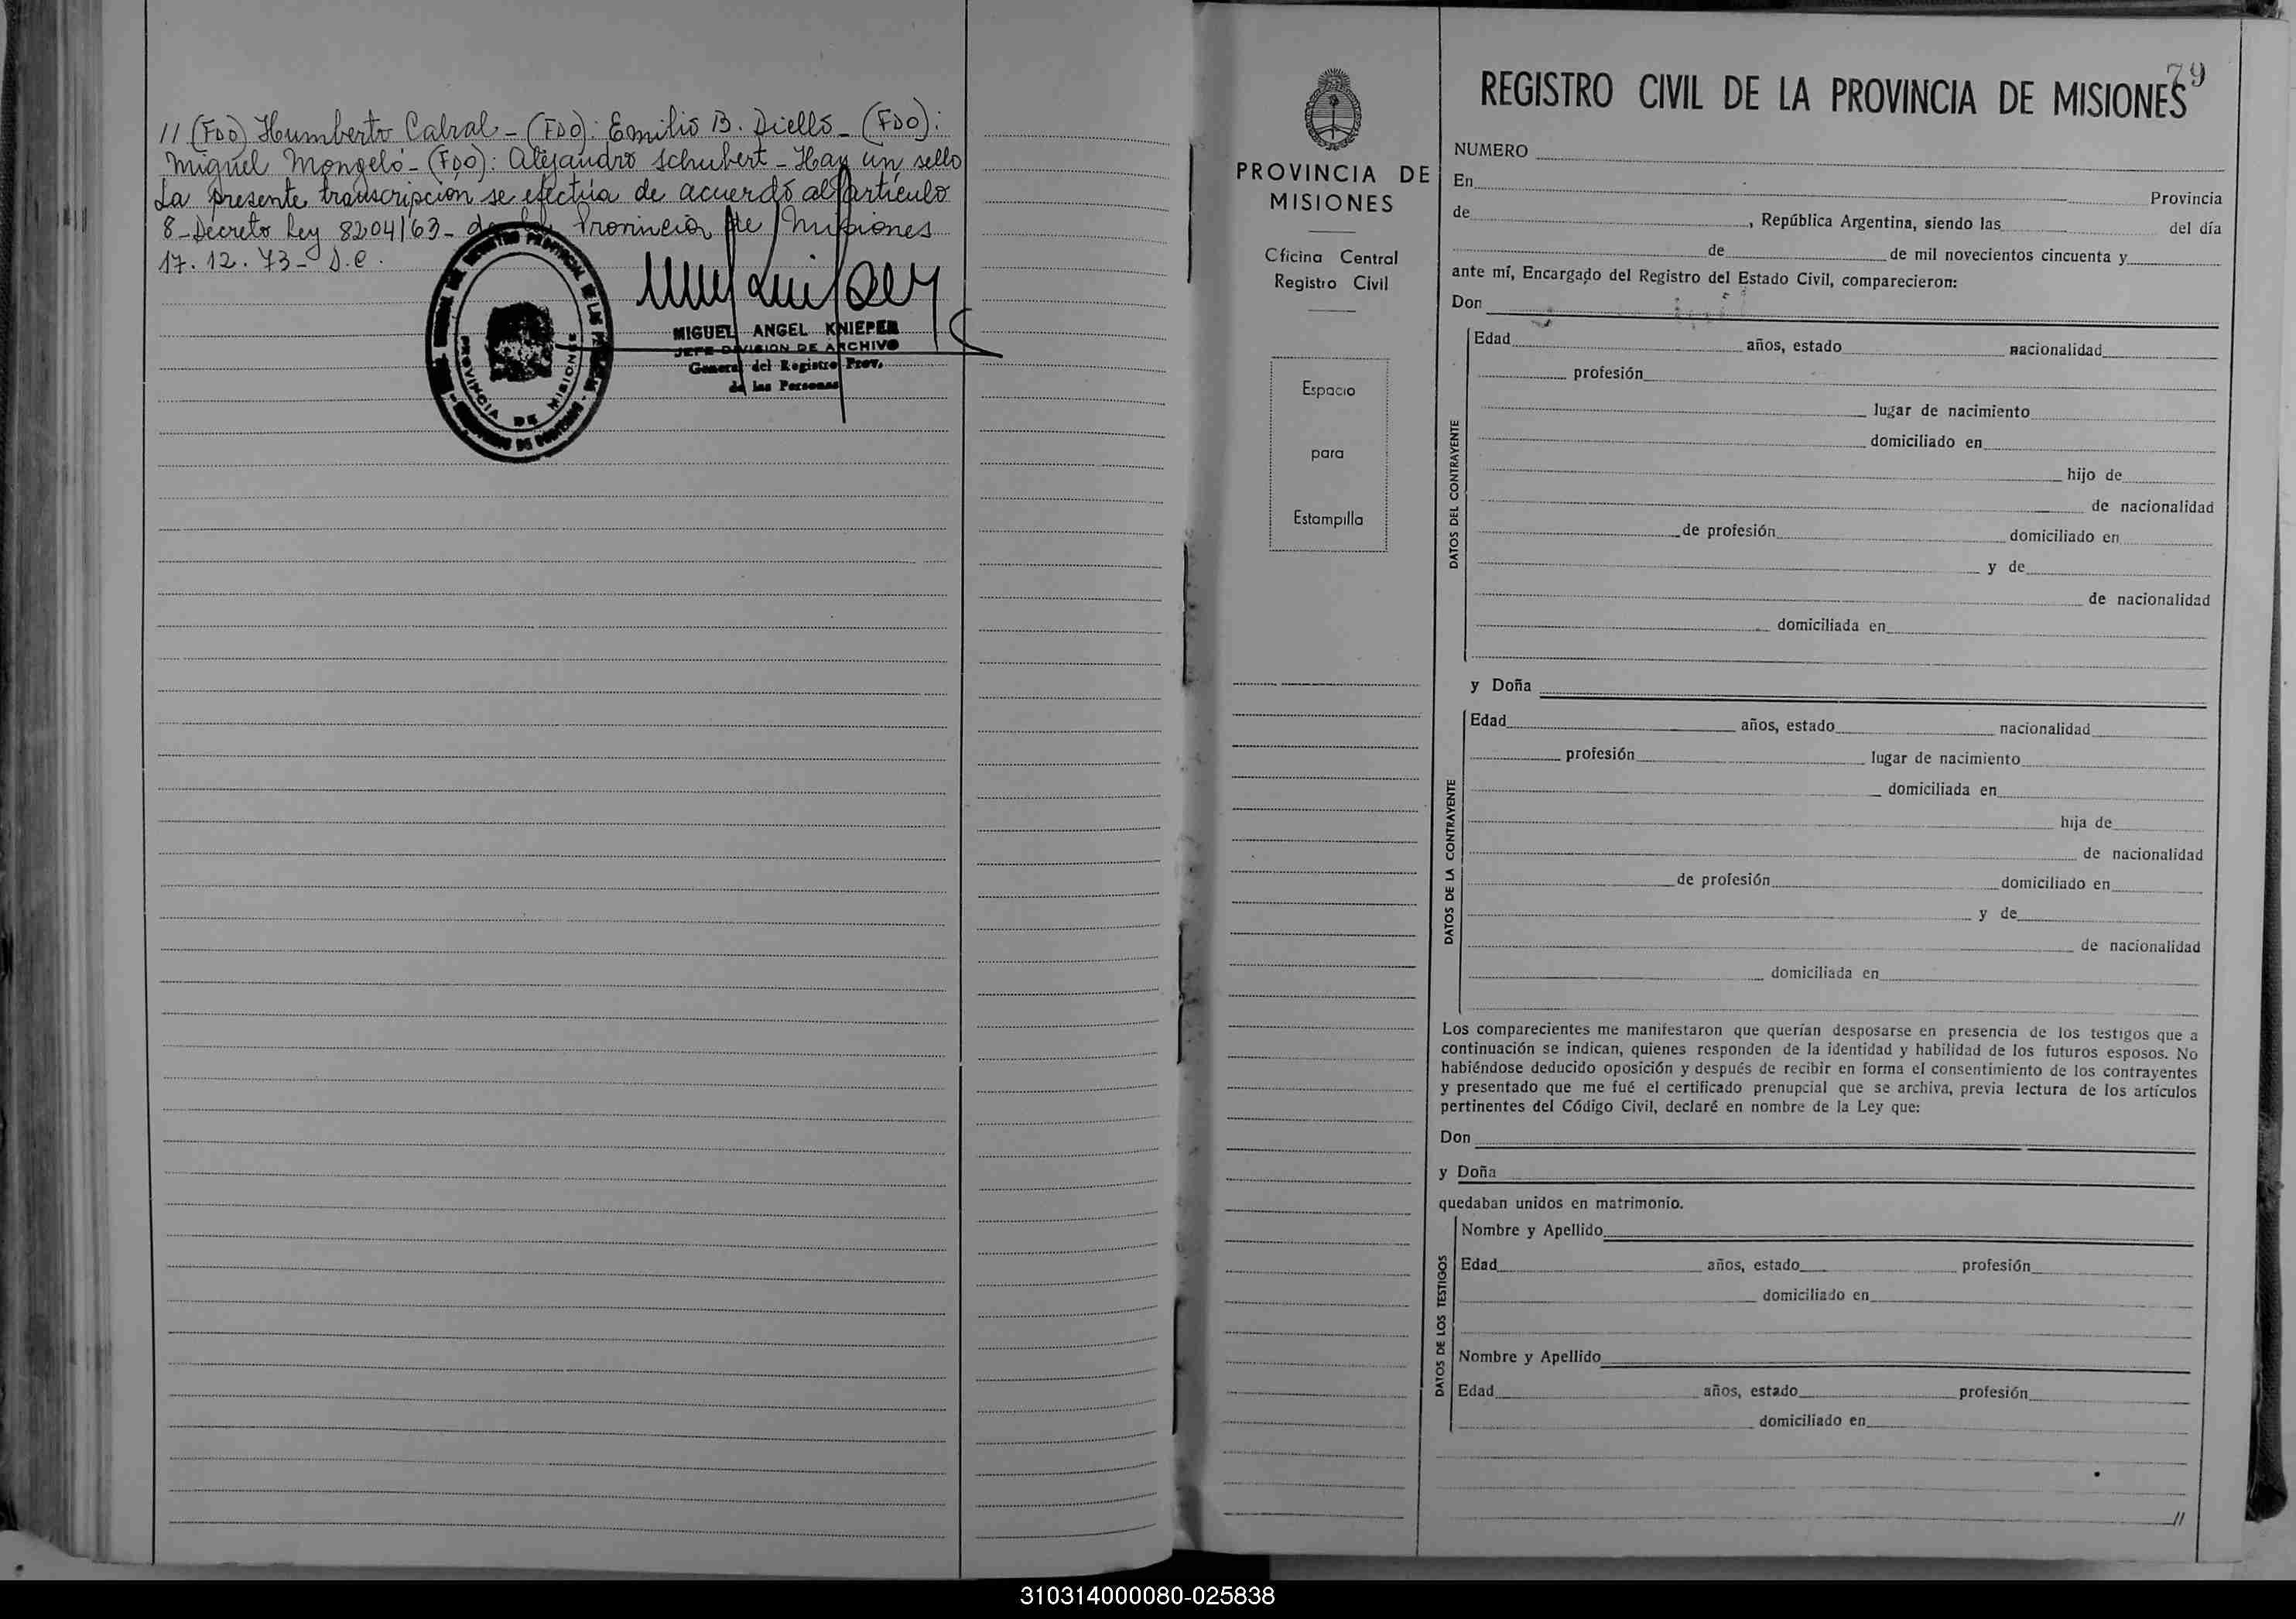 // (FDO) Humberto Cabral - (FDO): Emilio B. Diello - (FDO):
Miguel Mongeló - (FDO): Alejandro Schubert - Hay un sello
La presente transcripción se efectúa de acuerdo al artículo
8 - Decreto Ley 8204/63 - de la Provincia de Misiones
17.12.73 - D.C.
PROVINCIA DE MISIONES
MIGUEL ANGEL KNIEPER
JEFE DIVISION DE ARCHIVO
General del Registro Prov.
de las Personas
79
REGISTRO CIVIL DE LA PROVINCIA DE MISIONES
PROVINCIA DE
MISIONES
Oficina Central
Registro Civil
Espacio
para
Estampilla
NUMERO
En Provincia
de , República Argentina, siendo las del día
de de mil novecientos cincuenta y
ante mí, Encargado del Registro del Estado Civil, comparecieron:
Don
DATOS DEL CONTRAYENTE
Edad años, estado nacionalidad
profesión
lugar de nacimiento
domiciliado en
hijo de
de nacionalidad
de profesión domiciliado en
y de
de nacionalidad
domiciliada en
y Doña
DATOS DE LA CONTRAYENTE
Edad años, estado nacionalidad
profesión lugar de nacimiento
domiciliada en
hija de
de nacionalidad
de profesión domiciliado en
y de
de nacionalidad
domiciliada en
Los comparecientes me manifestaron que querían desposarse en presencia de los testigos que a
continuación se indican, quienes responden de la identidad y habilidad de los futuros esposos. No
habiéndose deducido oposición y después de recibir en forma el consentimiento de los contrayentes
y presentado que me fué el certificado prenupcial que se archiva, previa lectura de los artículos
pertinentes del Código Civil, declaré en nombre de la Ley que:
Don
y Doña
quedaban unidos en matrimonio.
DATOS DE LOS TESTIGOS
Nombre y Apellido
Edad años, estado profesión
domiciliado en
Nombre y Apellido
Edad años, estado profesión
domiciliado en
//
310314000080-025838